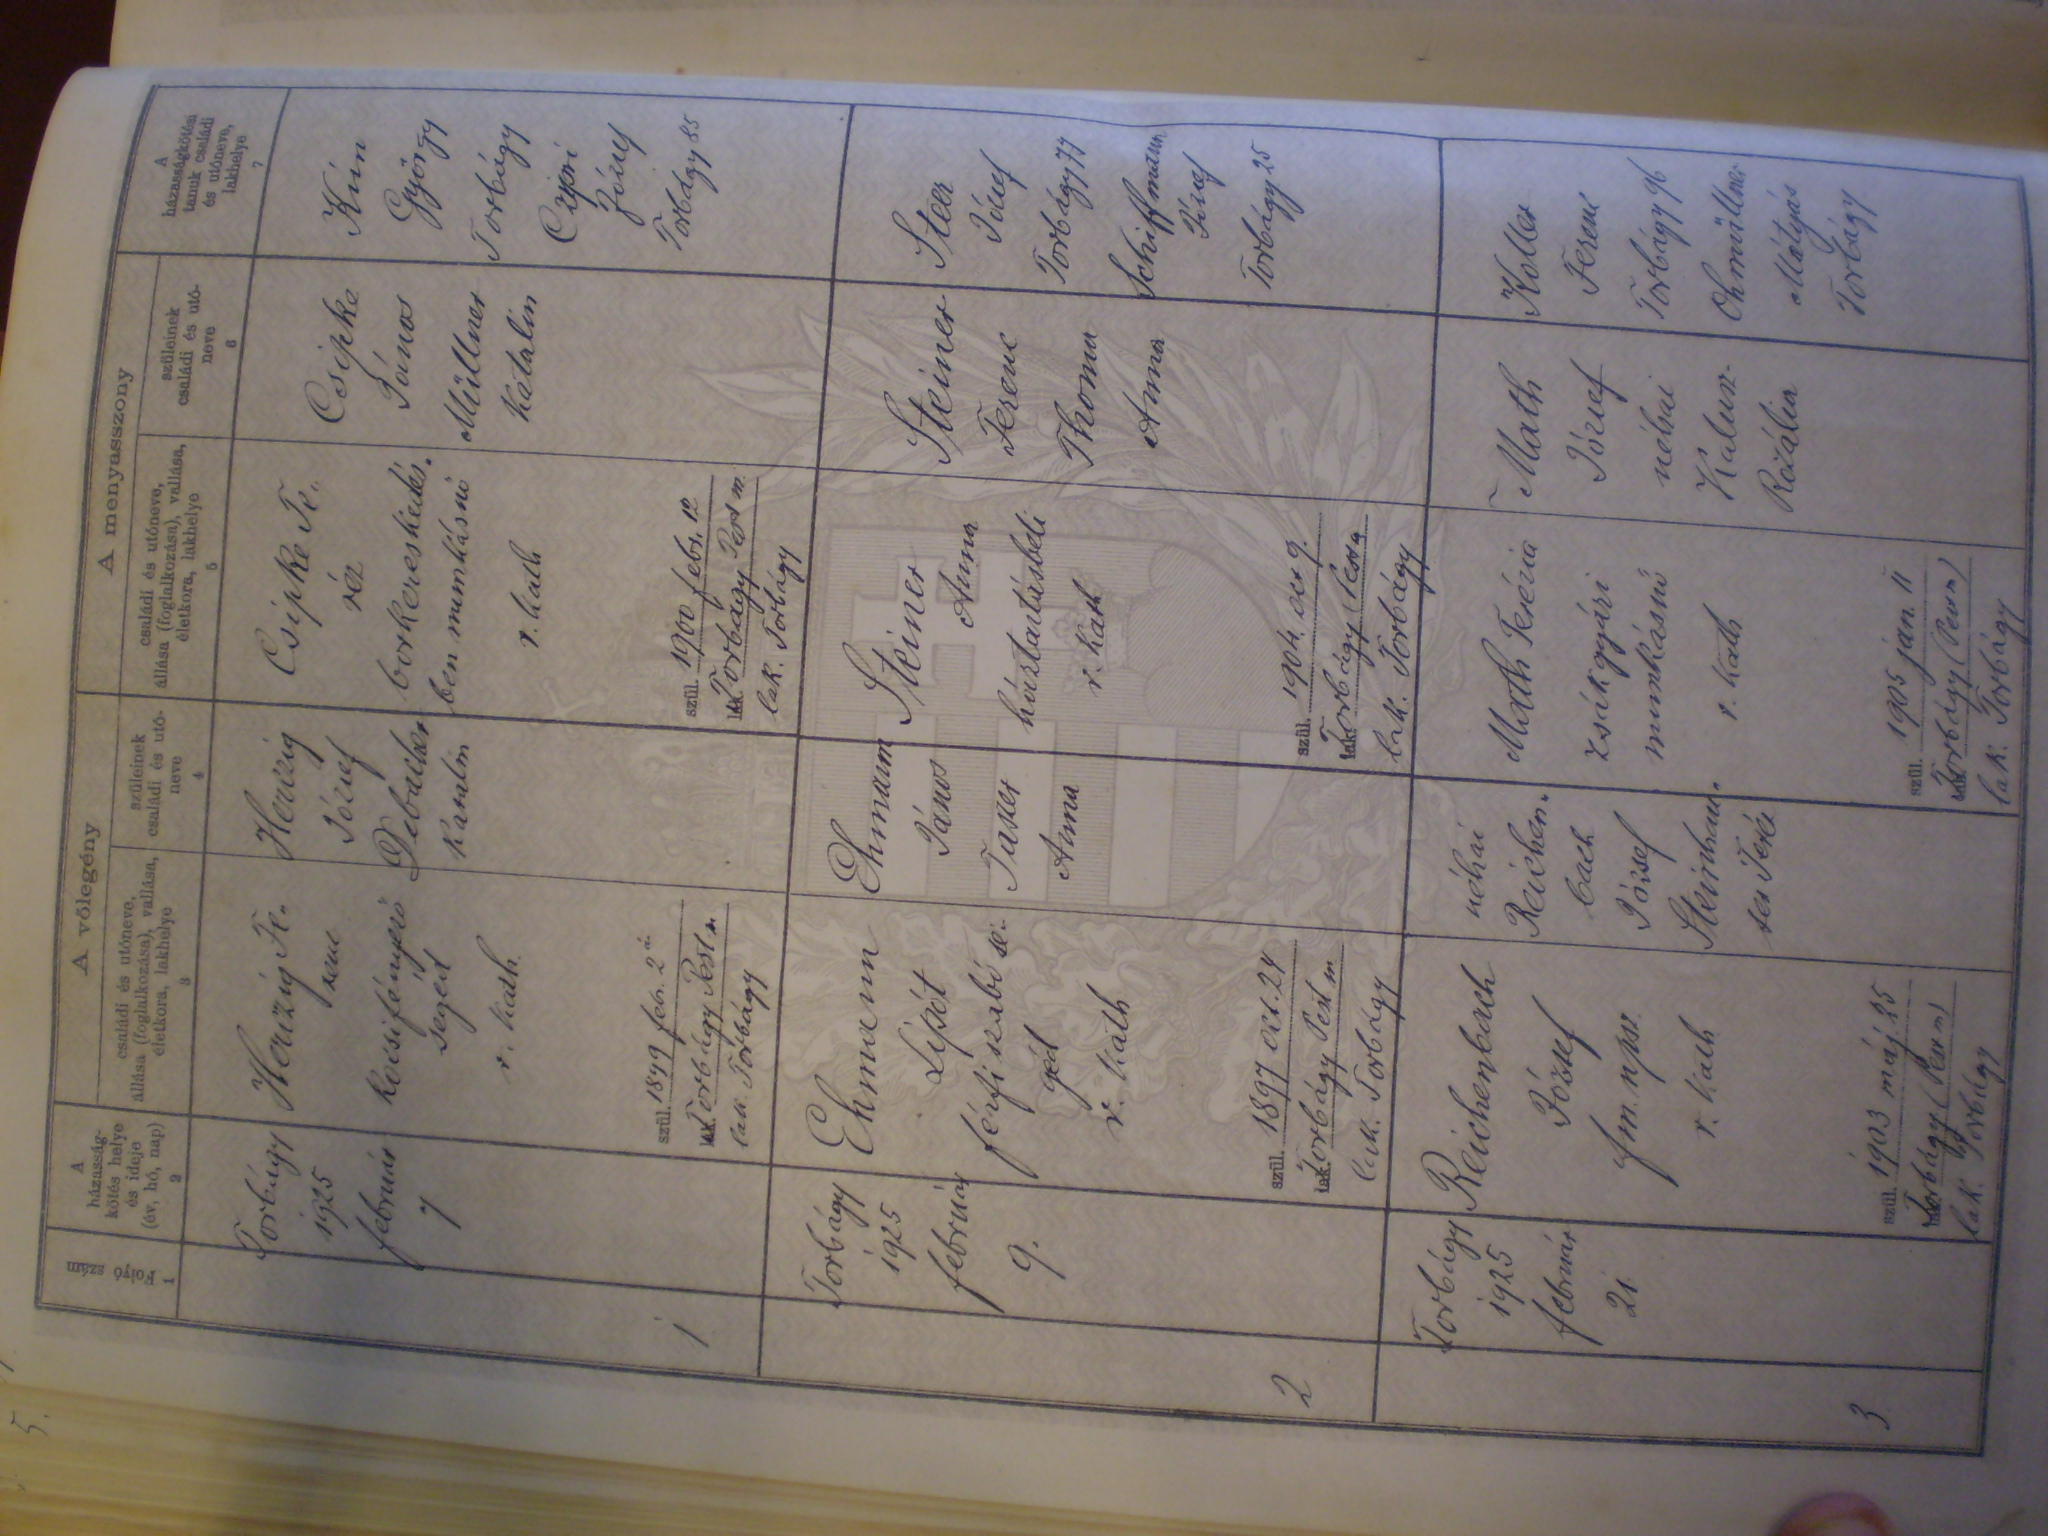 5.
A vőlegény
A menyasszony
Folyó szám
1
A
házasság-
kötés helye
és ideje
(év, hó, nap)
2
családi és utóneve,
állása (foglalkozása), vallása,
életkora, lakhelye
3
szüleinek
családi és utó-
neve
4
családi és utóneve,
állása (foglalkozása), vallása,
életkora, lakhelye
5
szüleinek
családi és utó-
neve
6
A
házasságkötési
tanuk családi
és utóneve,
lakhelye
7
1
Torbágy
1925
február
7
Herczig Fe-
renc
kocsifényező
segéd
r. kath.
szül. 1899 febr. 2
Torbágy Pest m.
lak. Torbágy
Herczig
József
Debacher
Katalin
Csipke Te-
réz
borkereskedés-
ben munkásnő
r. kath
szül. 1900 febr. 12
Torbágy Pest m.
lak. Torbágy
Csipke
János
Müllner
Katalin
György
Torbágy
József
Torbágy 85
2
Torbágy
1925
február
9.
Ehmann
Lipót
férfi szabó se-
géd
r. kath
szül. 1897 oct. 24
Torbágy Pest m
lak. Torbágy
Ehmann
János
Tuser
Anna
Steiner
Anna
háztartásbeli
r. kath
szül. 1904.
Torbágy
lak. Torbágy
Steiner
Ferenc
Thoma
Anna
Steer
József
Torbágy 77
Schiffmann
József
Torbágy 25
3
Torbágy
1925
február
21.
Reichenbach
József
fm. npsz.
r. kath
szül. 1903 máj 25
Torbágy (Pest m)
lak. Torbágy
néhai
Reichen-
bach
József
Steinhau-
ser Teréz
Math Terézia
zsákgyári
munkásnő
r. kath
szül. 1905 jan. 11
Torbágy (Pest m)
lak. Torbágy
Math
József
néhai
Rozália
Koller
Ferenc
Torbágy 96
Ohmüllner
Mátyás
Torbágy